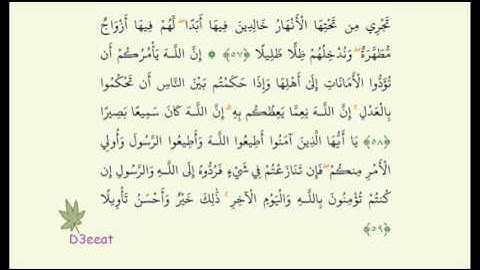 تَجْرِي مِن تَحْتِهَا الْأَنْهَارُ خَالِدِينَ فِيهَا أَبَدًا ۖ لَّهُمْ فِيهَا أَزْوَاجٌ
مُّطَهَّرَةٌ ۖ وَنُدْخِلُهُمْ ظِلًّا ظَلِيلًا ﴿٥٧﴾ ۞ إِنَّ اللَّهَ يَأْمُرُكُمْ أَن
تُؤَدُّوا الْأَمَانَاتِ إِلَىٰ أَهْلِهَا وَإِذَا حَكَمْتُم بَيْنَ النَّاسِ أَن تَحْكُمُوا
بِالْعَدْلِ ۚ إِنَّ اللَّهَ نِعِمَّا يَعِظُكُم بِهِ ۗ إِنَّ اللَّهَ كَانَ سَمِيعًا بَصِيرًا
﴿٥٨﴾ يَا أَيُّهَا الَّذِينَ آمَنُوا أَطِيعُوا اللَّهَ وَأَطِيعُوا الرَّسُولَ وَأُولِي
الْأَمْرِ مِنكُمْ ۖ فَإِن تَنَازَعْتُمْ فِي شَيْءٍ فَرُدُّوهُ إِلَى اللَّهِ وَالرَّسُولِ إِن
كُنتُمْ تُؤْمِنُونَ بِاللَّهِ وَالْيَوْمِ الْآخِرِ ۚ ذَٰلِكَ خَيْرٌ وَأَحْسَنُ تَأْوِيلًا
﴿٥٩﴾
D3eeat